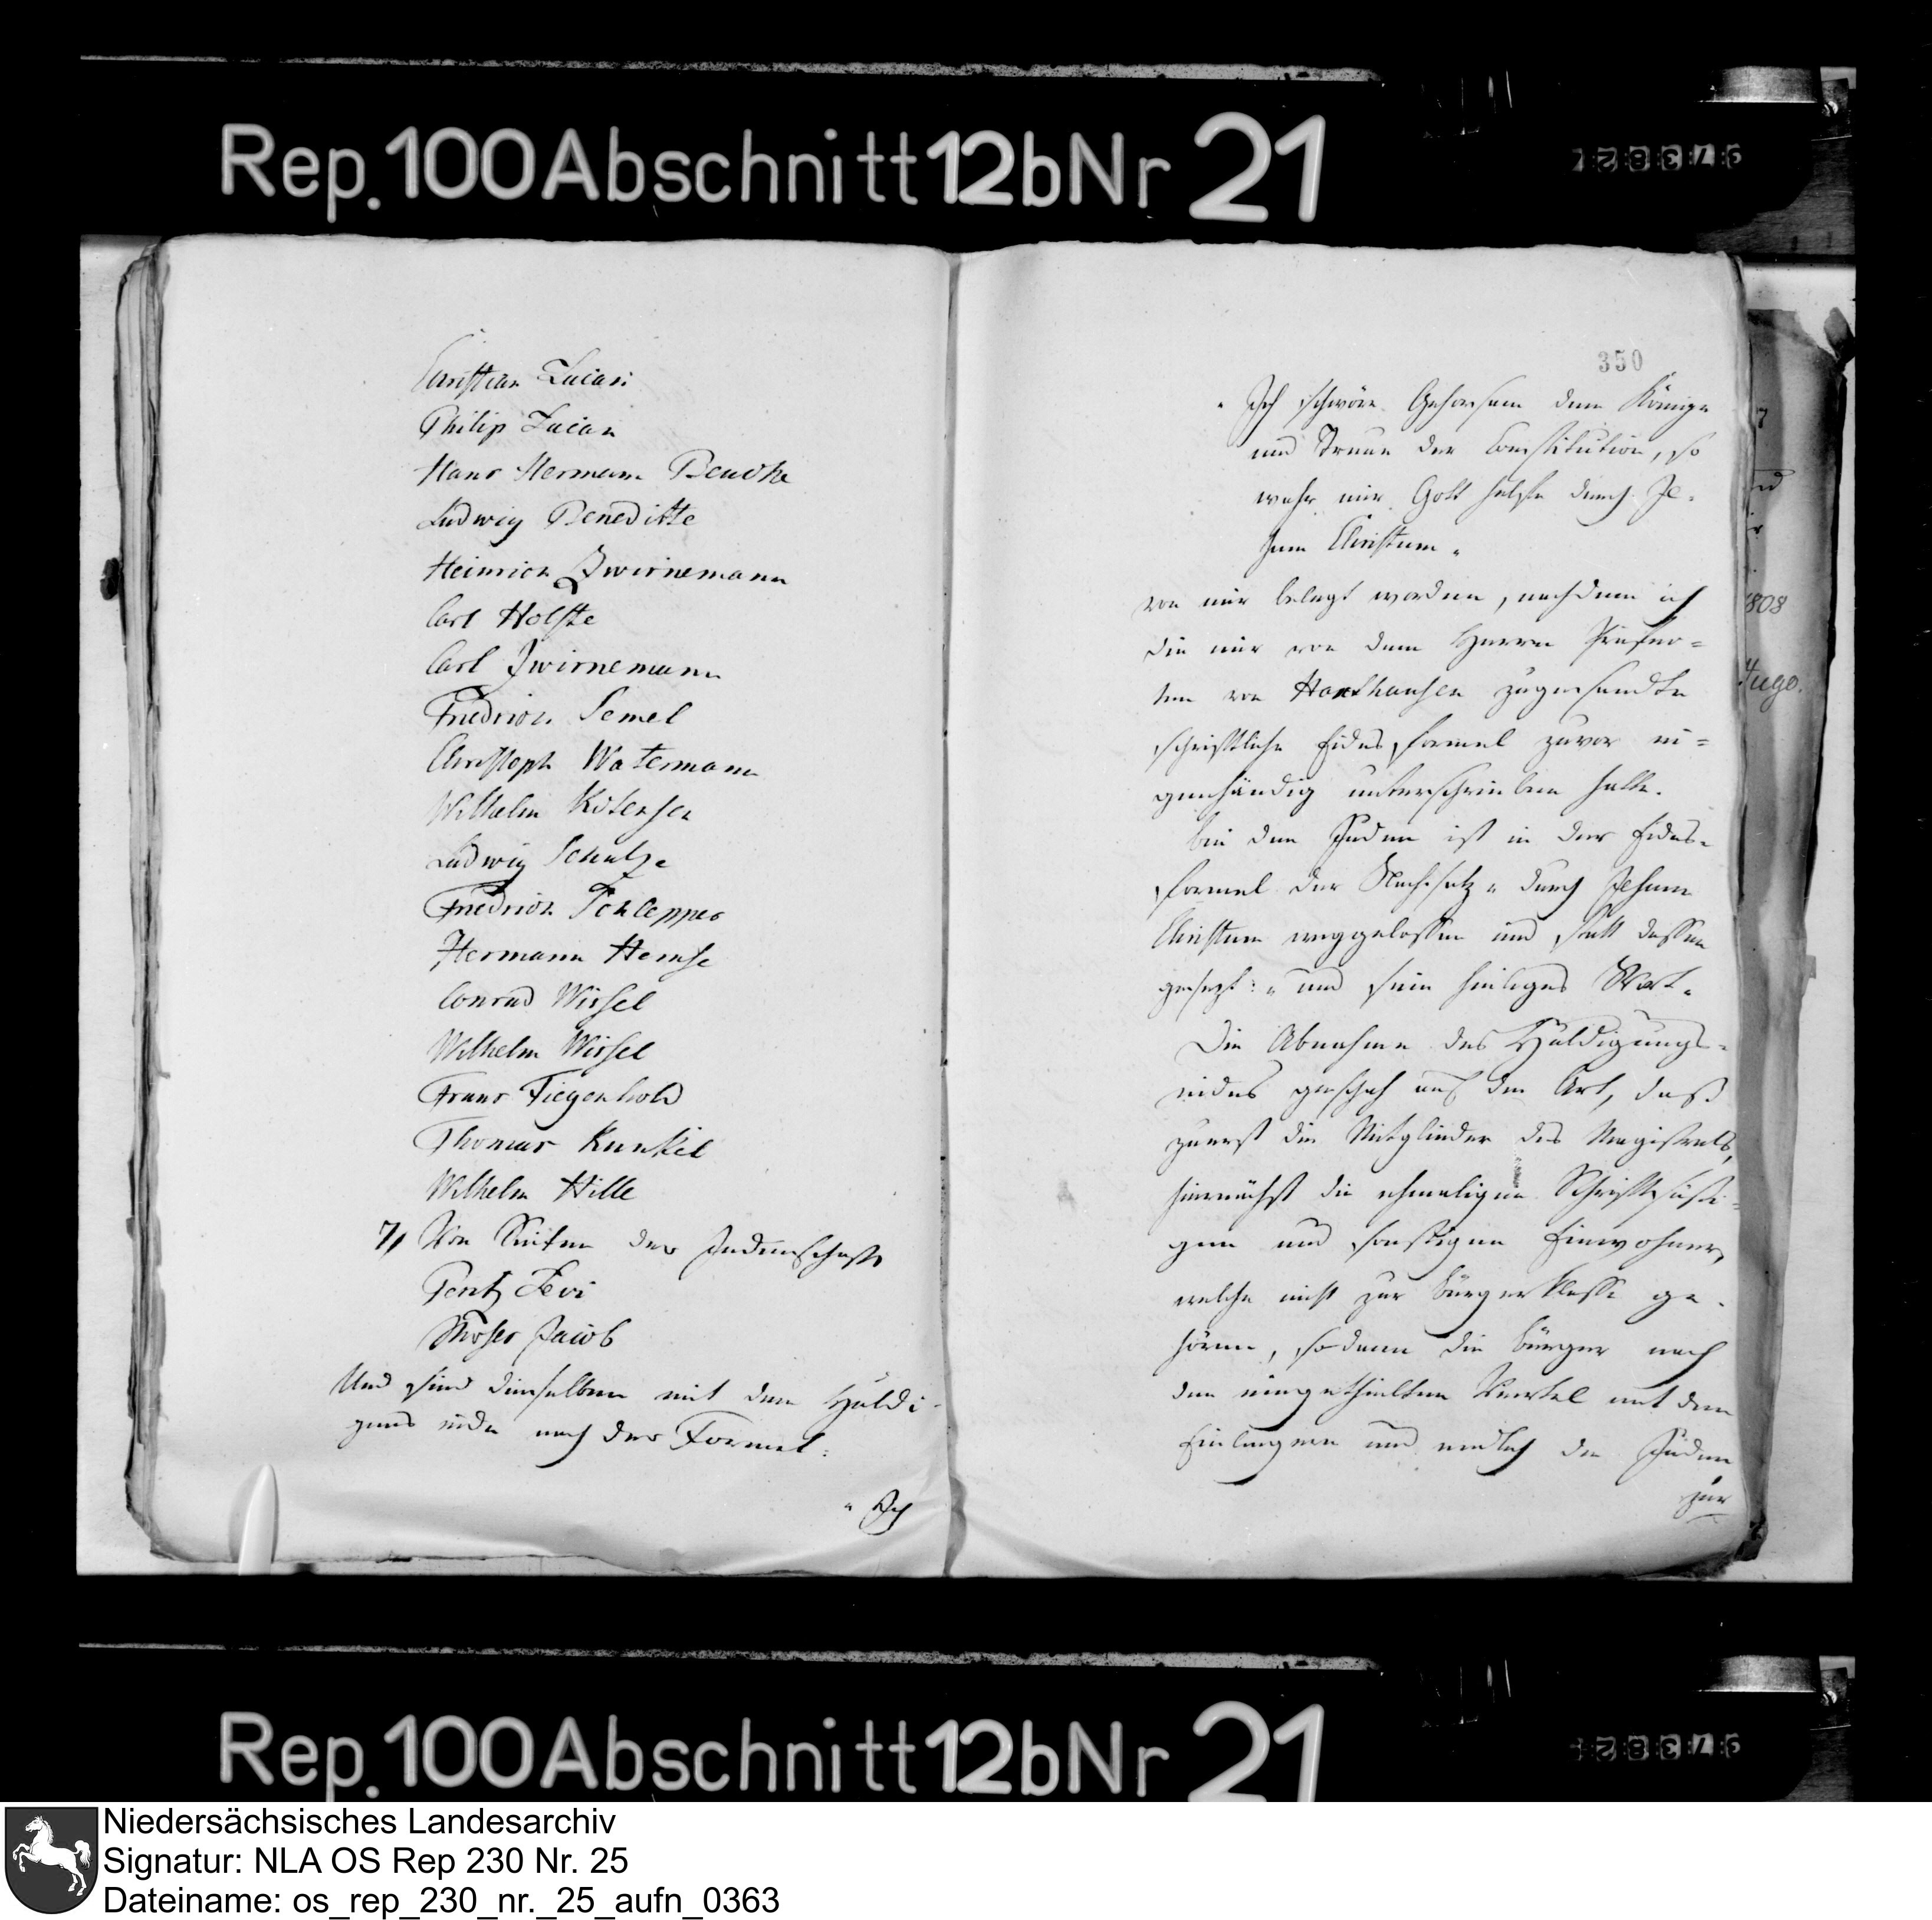 Rep. 100 Abschnitt 12b Nr 21
Christian Lucian
Philip Lucian
Hans Hermann
Ludwig Beneditte
Heinrich Zwirnemann
Carl Holste
Carl Zwirnemann
Friedrich Semel
Christoph Watermann
Wilhelm
Ludwig Schulze
Friedrich Schlepper
Hermann Hemse
Conrad Wissel
Wilhelm Wissel
Franz Fiegenhold
Thomas Kunkel
Wilhelm Hille
7, Von Seiten der Judenschaft
Levi
Moses Jacob
Und sind dieselben mit dem Huldi-
gungs eide nach der Formel:
" Ich
350
" Ich schwöre Gehorsam dem Könige
und Treue der Constitution, so
wahr mir Gott helfe durch Je-
sum Christum "
von mir belegt worden, nachdem ich
die mir von dem Herrn Präfec-
ten von Haxthausen zugesandte
schriftliche Eides formel zuvor ei-
genhändig unterschrieben hatte.
bei den Juden ist in der Eides-
formel der Nachsatz " durch Jesum
Christum weggelassen und statt dessen
gesezt: " und sein heiliges Wort "
Die Abnahme des Huldigungs-
eides geschah auf die Art, daß
zuerst die Mitglieder des Magistrats,
hiernächst die ehmaligen Schriftsäßi-
gen und sonstigen Einwohner,
welche nicht zur bürger Classe ge-
hören, sodann die bürger nach
den eingetheilten Viertel mit den
Einliegern und endlich die Juden
zur
808
Rep. 100 Abschnitt 12b Nr 21
Niedersächsisches Landesarchiv
Signatur: NLA OS Rep 230 Nr. 25
Dateiname: os_rep_230_nr._25_aufn_0363